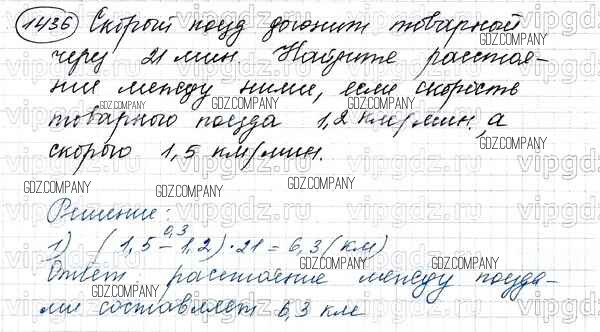 1436 Скорый поезд догонит товарный
через 21 мин. Найдите расстоя-
ние между ними, если скорость
товарного поезда 1,2 км/мин., а
скорого 1,5 км/мин.
Решение:
0,3
1) (1,5 - 1,2) · 21 = 6,3 (км)
Ответ: расстояние между поезда-
ми составляет 6,3 км